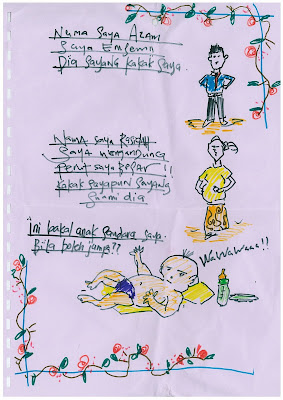 Nama saya Azam
Saya
Dia sayang kakak saya.
Nama saya
Saya mengandung
Perut saya besar !!
Kakak sayapun sayang
suami dia
Ini bakal anak sendara saya.
Bila boleh jumpa??
Wawawaaa!!